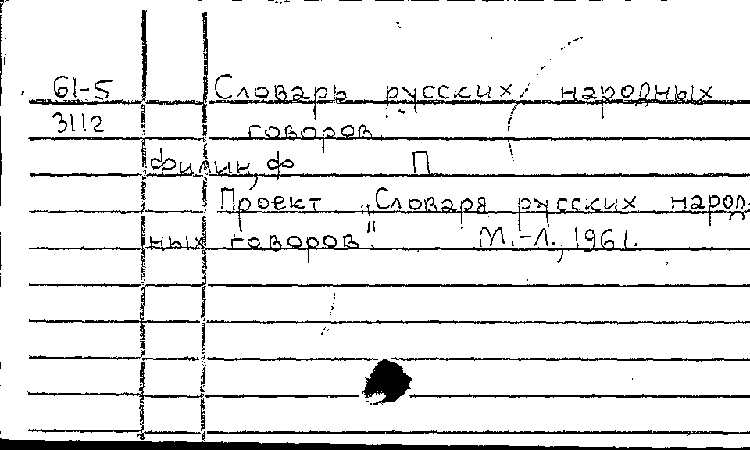 61-5 Словарь русских народных
3112 говоров.
Филин, Ф П
Проект „Словаря русских народ-
ных говоров". М.-Л., 1961.